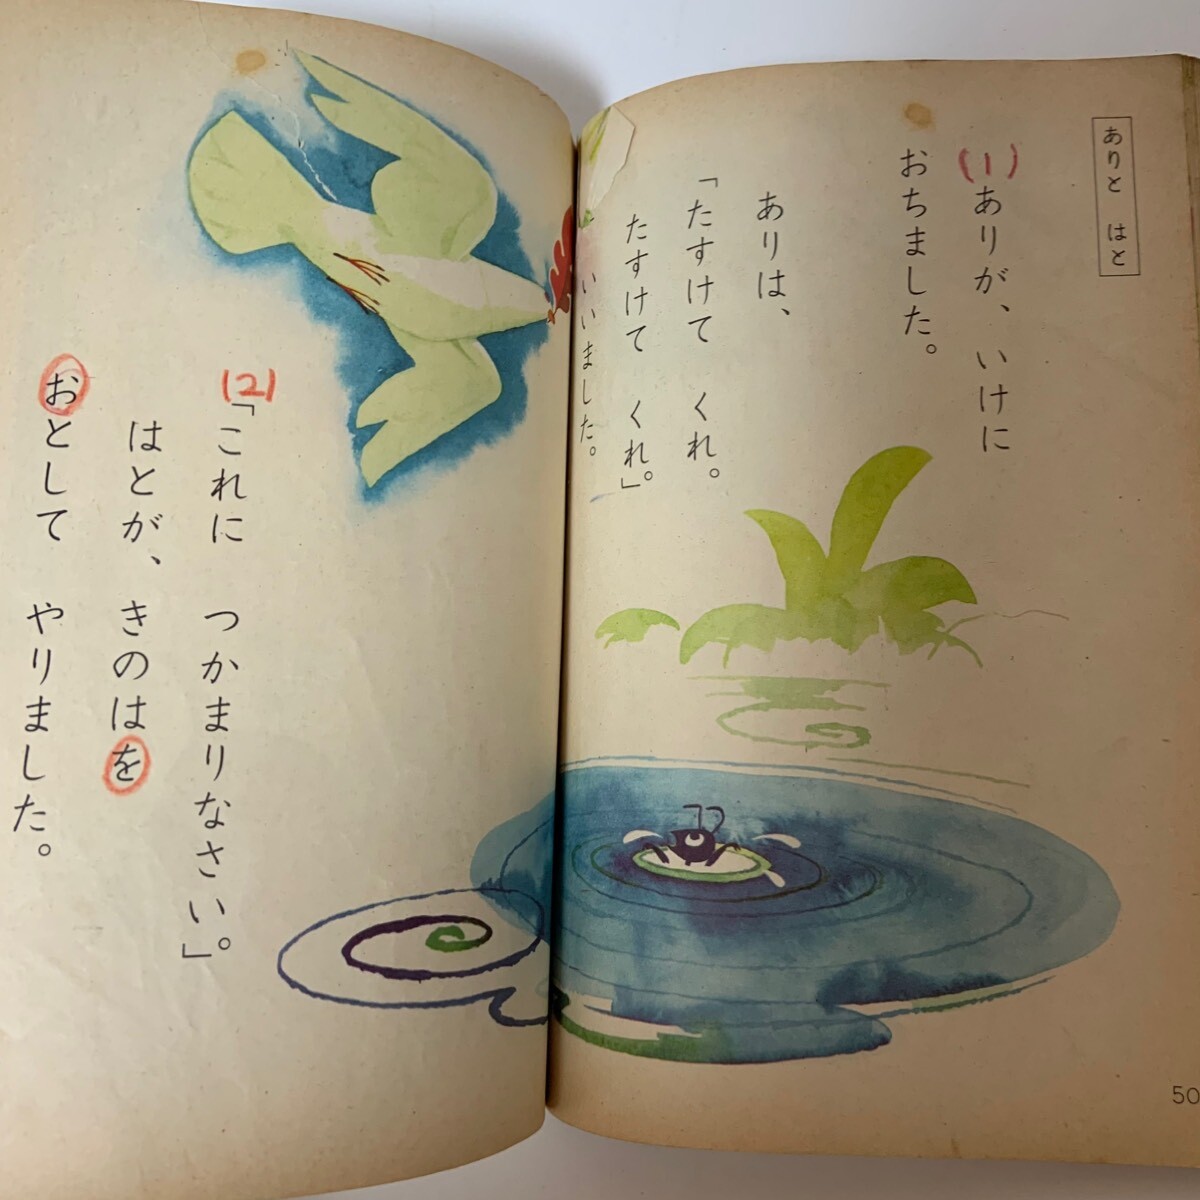 ありと はと
(1)
ありが、いけに
おちました。
ありは、
「たすけて くれ。
たすけて くれ。」
いいました。
50
(2)
「これに つかまりなさい。」
はとが、きのはを
おとして やりました。